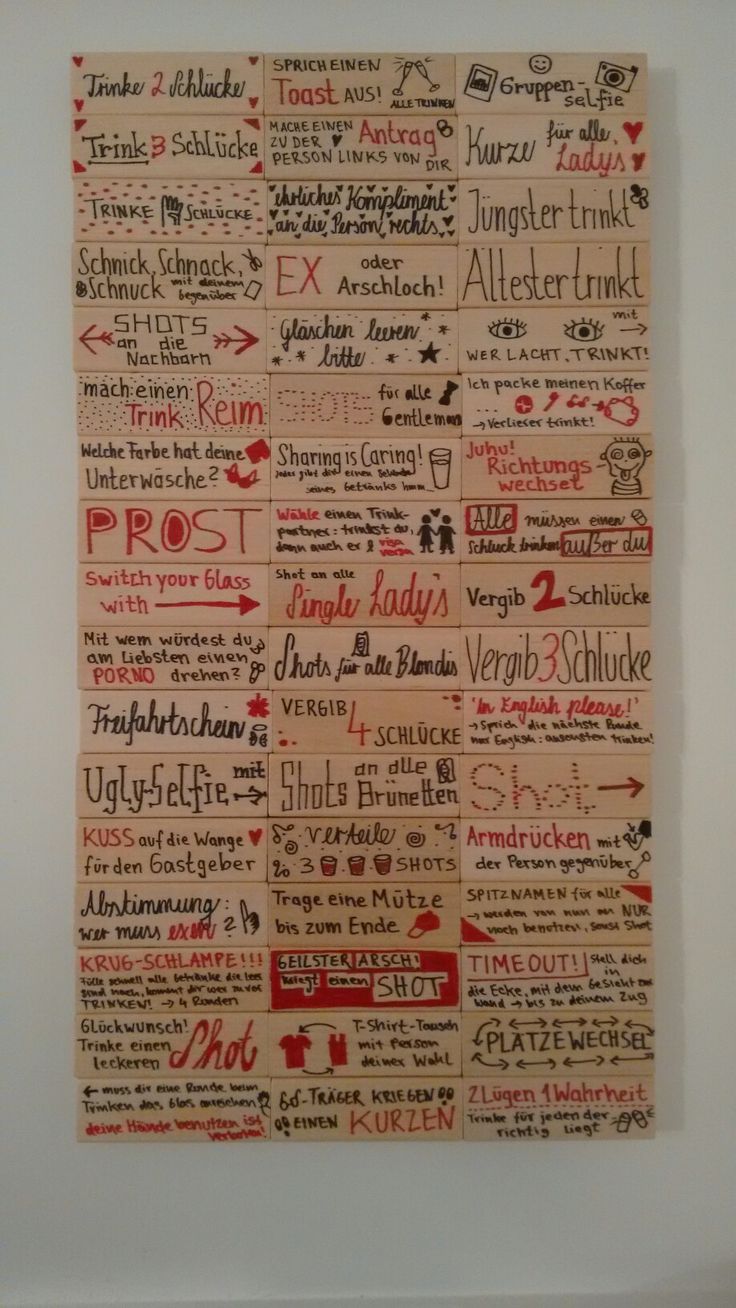 Trinke 2 Schlücke
SPRICH EINEN
Toast AUS!
ALLE TRINKEN
Gruppen-
selfie
Trink 3 Schlücke
MACHE EINEN Antrag
ZU DER
PERSON LINKS VON DIR
Kurze für alle
Ladys
TRINKE SCHLÜCKE
ehrliches Kompliment
an die Person rechts
Jüngster trinkt
Schnick, Schnack,
Schnuck mit deinem
Gegenüber
EX oder
Arschloch!
Ältester trinkt
SHOTS
an die
Nachbarn
Gläschen leeren
bitte
mit
WER LACHT, TRINKT!
mach einen
Trink Reim
SHOTS für alle
Gentleman
Ich packe meinen Koffer
...
→ Verlierer trinkt!
Welche Farbe hat deine
Unterwäsche?
Sharing is Caring!
Jeder gibt dir einen Schluck
seines Getränks hmm...
Juhu!
Richtungs
wechsel
PROST
Wähle einen Trink-
partner: trinkst du,
dann auch er & visa
versa
Alle müssen einen
Schluck trinken außer du
Switch your Glass
with
Shot an alle
Single Lady's
Vergib 2 Schlücke
Mit wem würdest du
am Liebsten einen
PORNO drehen?
Shots für alle Blondis
Vergib 3 Schlücke
Freifahrtschein
VERGIB
4 SCHLÜCKE
'In English please!'
→ Sprich die nächste Runde
nur English: ansonsten trinken!
Ugly-Selfie mit
Shots an alle
Brünetten
Shot
KUSS auf die Wange
für den Gastgeber
verteile
3 SHOTS
Armdrücken mit
der Person gegenüber
Abstimmung:
wer muss exen?
Trage eine Mütze
bis zum Ende
SPITZNAMEN für alle
→ werden von nun an NUR
noch benutzen, sonst Shot
KRUG-SCHLAMPE!!!
Fülle schnell alle Getränke die leer
sind nach, kommt dir wer zuvor
TRINKEN! → 4 Runden
GEILSTER ARSCH!
kriegt einen
SHOT
TIMEOUT! Stell dich
in
die Ecke, mit dem Gesicht zur
Wand → bis zu deinem Zug
Glückwunsch!
Trinke einen
leckeren Shot
T-Shirt-Tausch
mit Person
deiner Wahl
PLÄTZE WECHSEL
← muss dir eine Runde beim
Trinken das Glas anreichen
deine Hände benutzen ist
verboten!
BH-TRÄGER KRIEGEN
EINEN KURZEN
2 Lügen 1 Wahrheit
Trinke für jeden der
richtig liegt